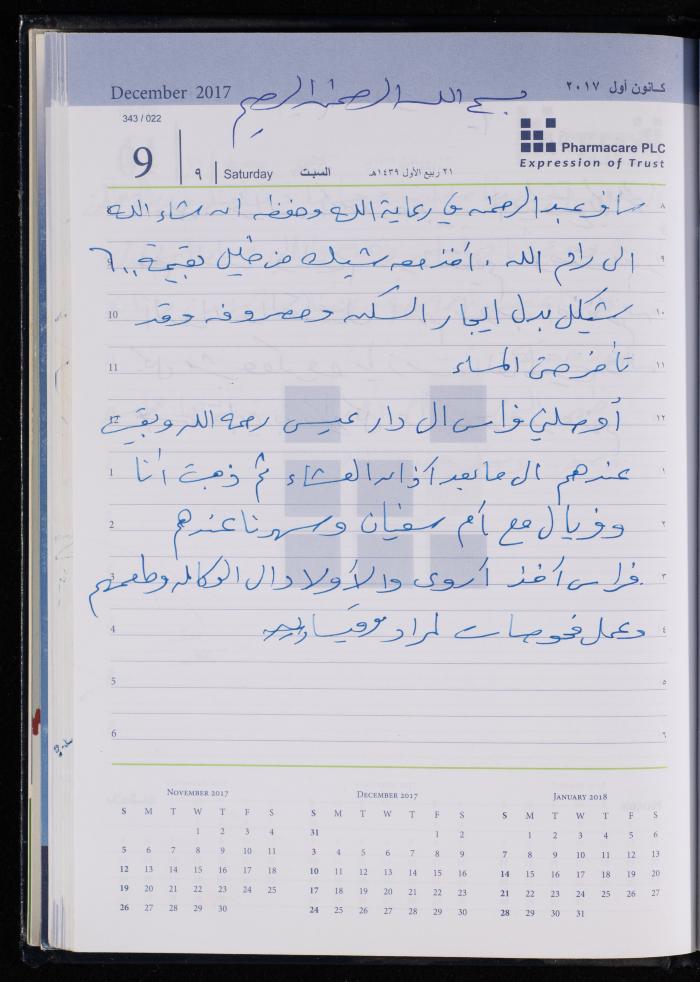 December 2017
بسم الله الرحمن الرحيم
كانون أول ٢٠١٧
343 / 022
9
٩
Saturday
السبت
٢١ ربيع الأول ١٤٣٩هـ
Pharmacare PLC
Expression of Trust
سافر عبد الرحمن في رعاية الله وحفظه ان شاء الله ٨
9 الى رام الله . أخذ معه شيك من خليل بقيمة ٦٠٠ ٩
10 شيكل بدل ايجار السكن ومصروفه وقد ١٠
11 تأخر حتى المساء ١١
12 أوصلني فراس ال دار عيسى رحمه الله وبقيت ١٢
1 عندهم ال ما بعد أذان العشاء ثم ذهبت أنا ١
2 وفريال مع أم سفيان وسهرنا عندهم ٢
3 فراس أخذ أروى والأولاد ال الوكالة وطعمهم ٣
4 وعمل فحوصات لمراد ٤
5 ٥
6 ٦
November 2017
S M T W T F S
1 2 3 4
5 6 7 8 9 10 11
12 13 14 15 16 17 18
19 20 21 22 23 24 25
26 27 28 29 30
December 2017
S M T W T F S
31 1 2
3 4 5 6 7 8 9
10 11 12 13 14 15 16
17 18 19 20 21 22 23
24 25 26 27 28 29 30
January 2018
S M T W T F S
1 2 3 4 5 6
7 8 9 10 11 12 13
14 15 16 17 18 19 20
21 22 23 24 25 26 27
28 29 30 31